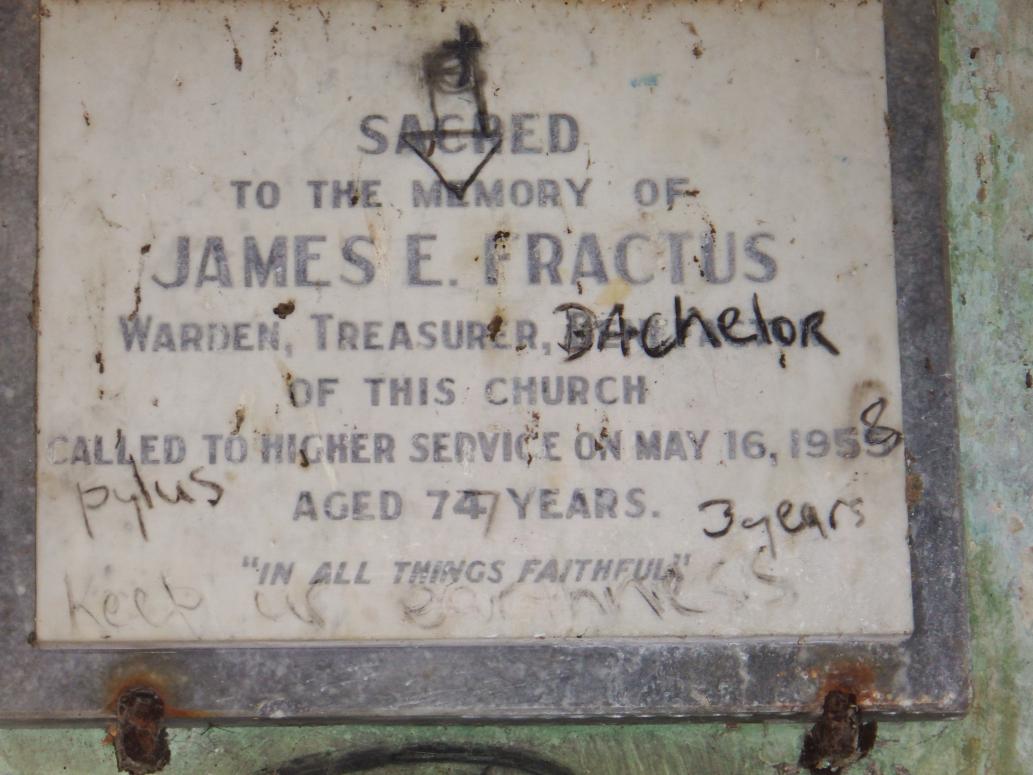 SACRED
TO THE MEMORY OF
JAMES E. FRACTUS
WARDEN, TREASURER, BAchelor
OF THIS CHURCH
CALLED TO HIGHER SERVICE ON MAY 16, 1958
pylus
AGED 74 YEARS.
3 years
"IN ALL THINGS FAITHFUL"
Keep ur